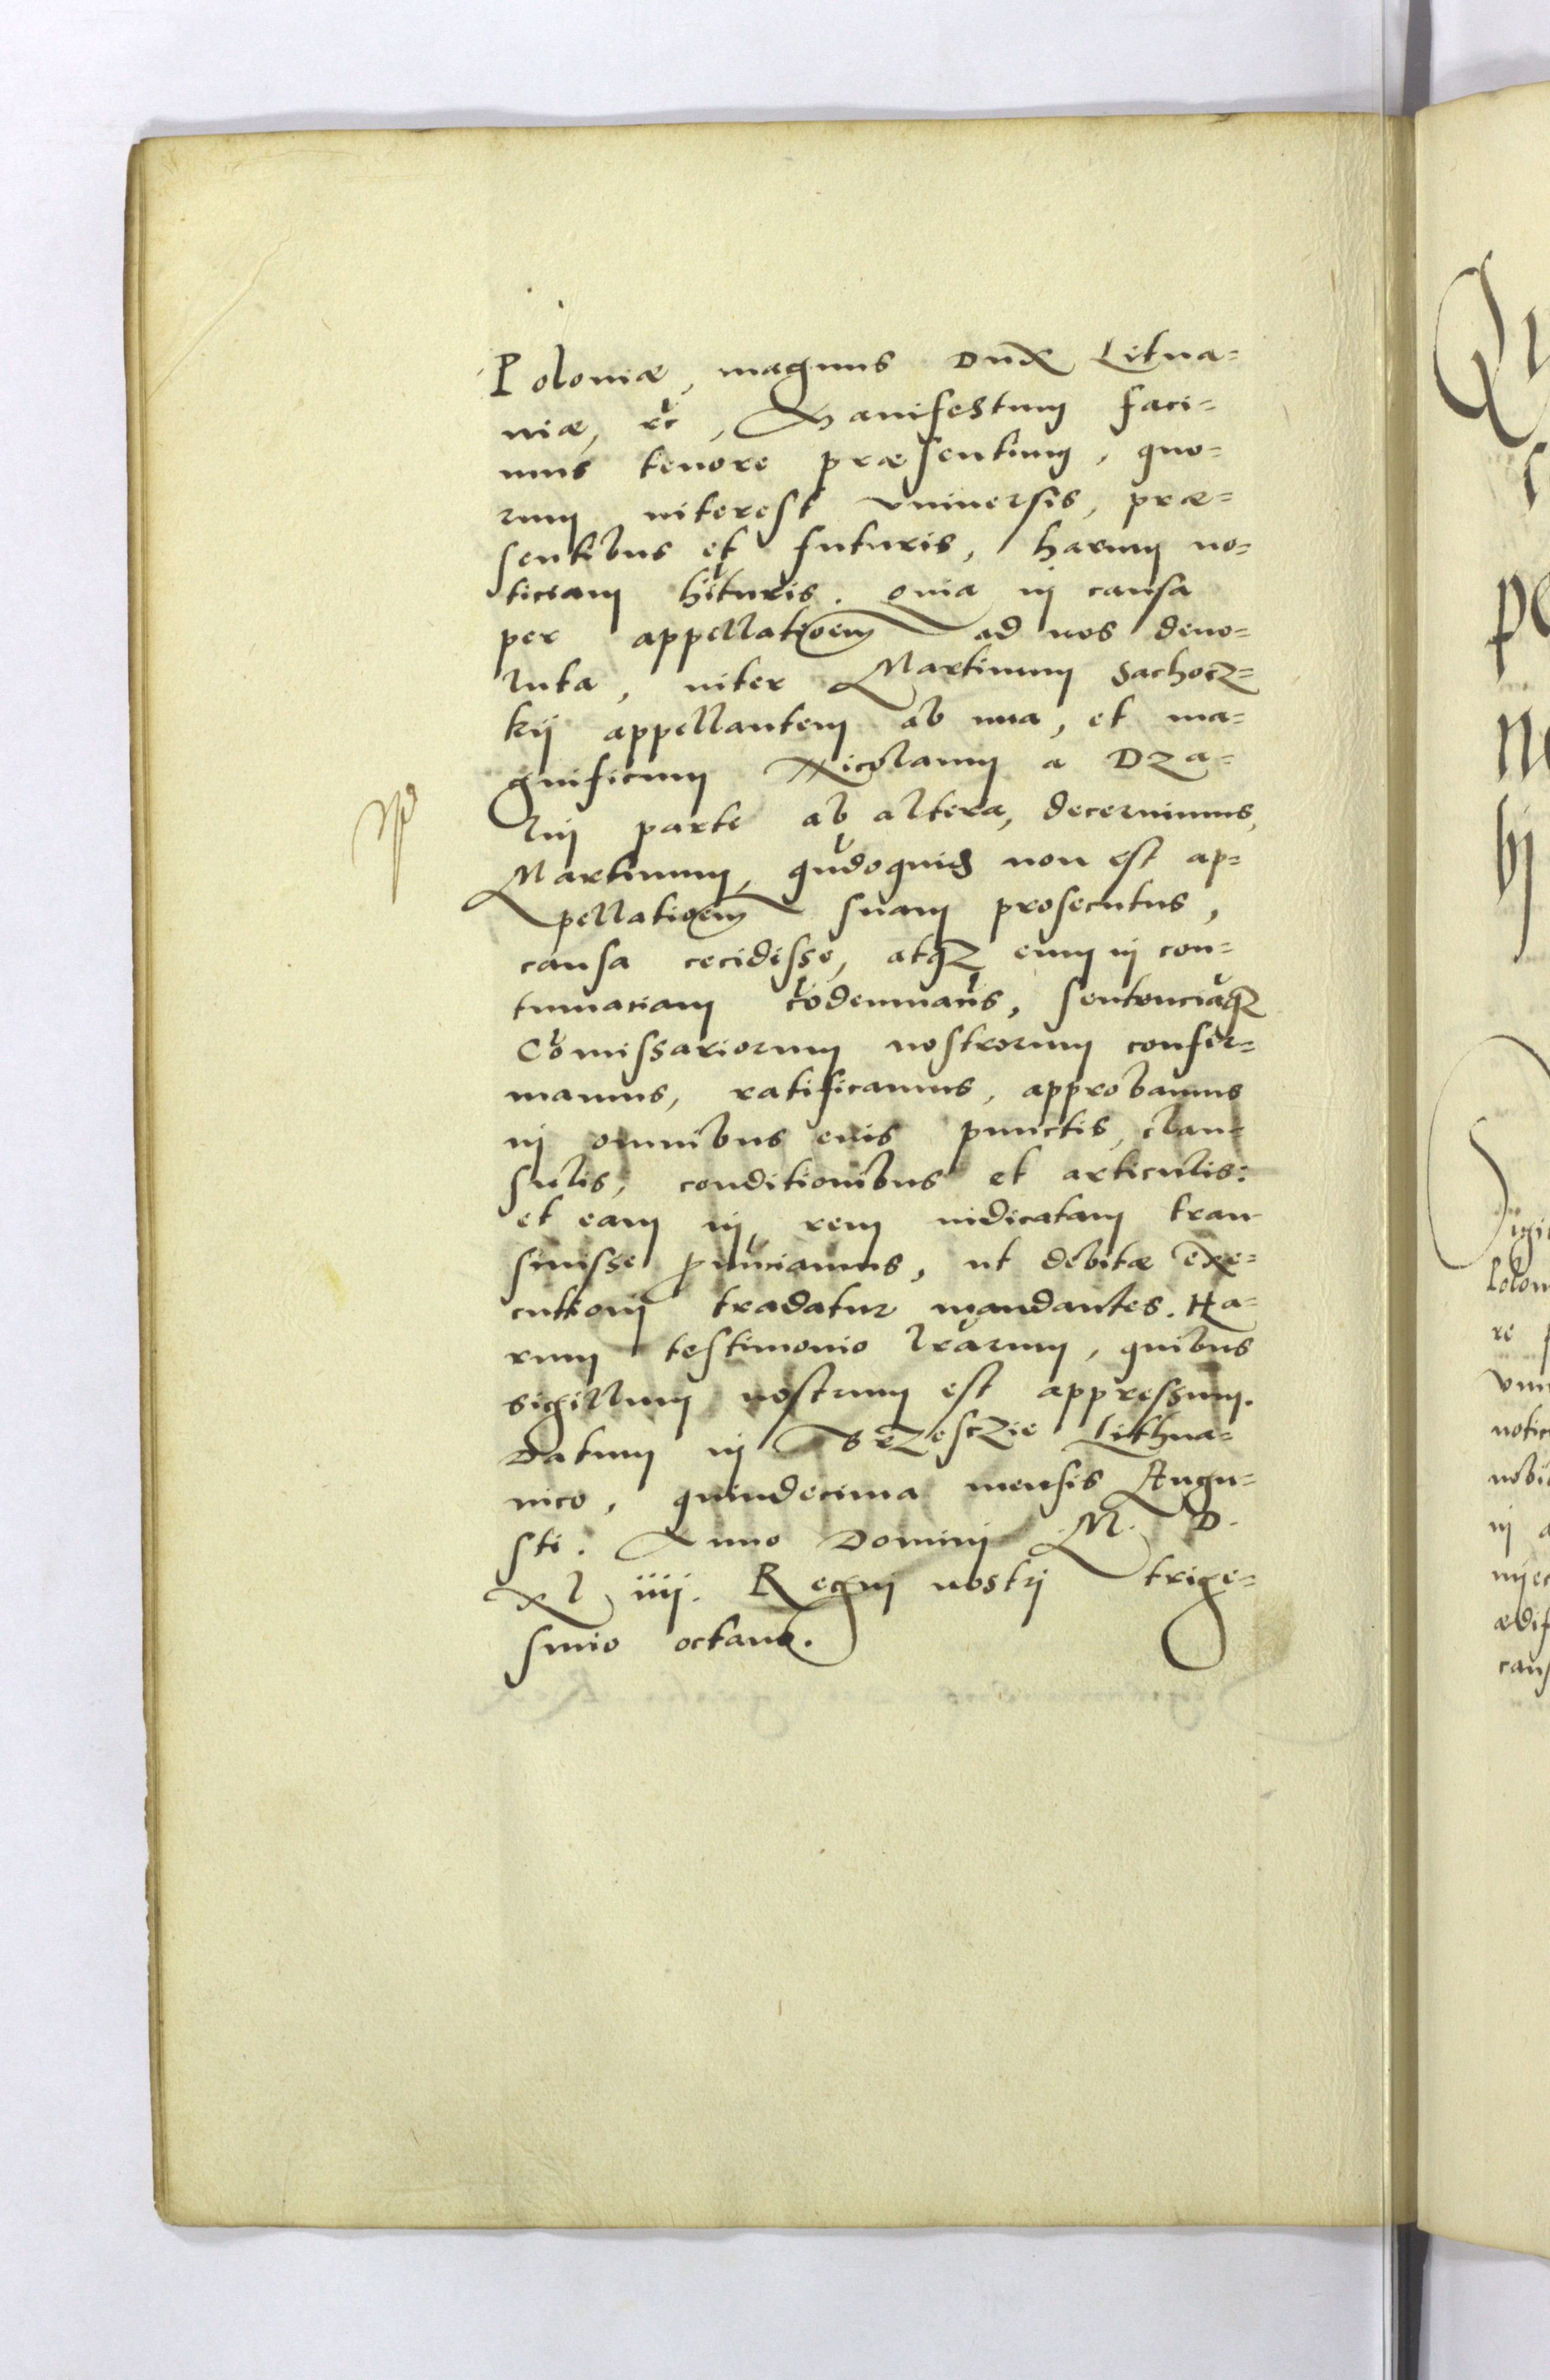 Poloniæ, magnus Dux Litua=
niæ, ꝛc̃, Manifestum faci=
mus tenore præsentium, quo=
rum interest vniuersis, præ=
sentibus et futuris, harum no=
ticiam hituris. Quia in causa
per appellatioem ad nos deuo=
luta, inter Martinum Sachocz=
kij appellantem ab vna, et ma=
gnificum Nicolaum a Dza=
lin parte ab altera, decernimus,
Martinum, qūdoquid non est ap=
pellatioem suam prosecutus,
causa cecidisse, atqz eum in con=
tumaciam cōdemnaūs, sentenciāqz
Cōmissariorum nostrorum confir=
mamus, ratificamus, approbamus
in omnibus eius punctis, clau=
sulis, conditionibus et articulis:
et eam in rem iudicatam tran
siuisse p̱nūciamus, ut debitæ exe=
cutioni tradatur mandantes. Ha=
rum testimonio lr̄arum, quibus
sigillum nostrum est appressum.
Datum in Brzesczie Lithua=
nico, quindecima mensis Augu=
sti. Anno Domini M. D.
xl iiij. Regni nostri trige=
simo octauo.